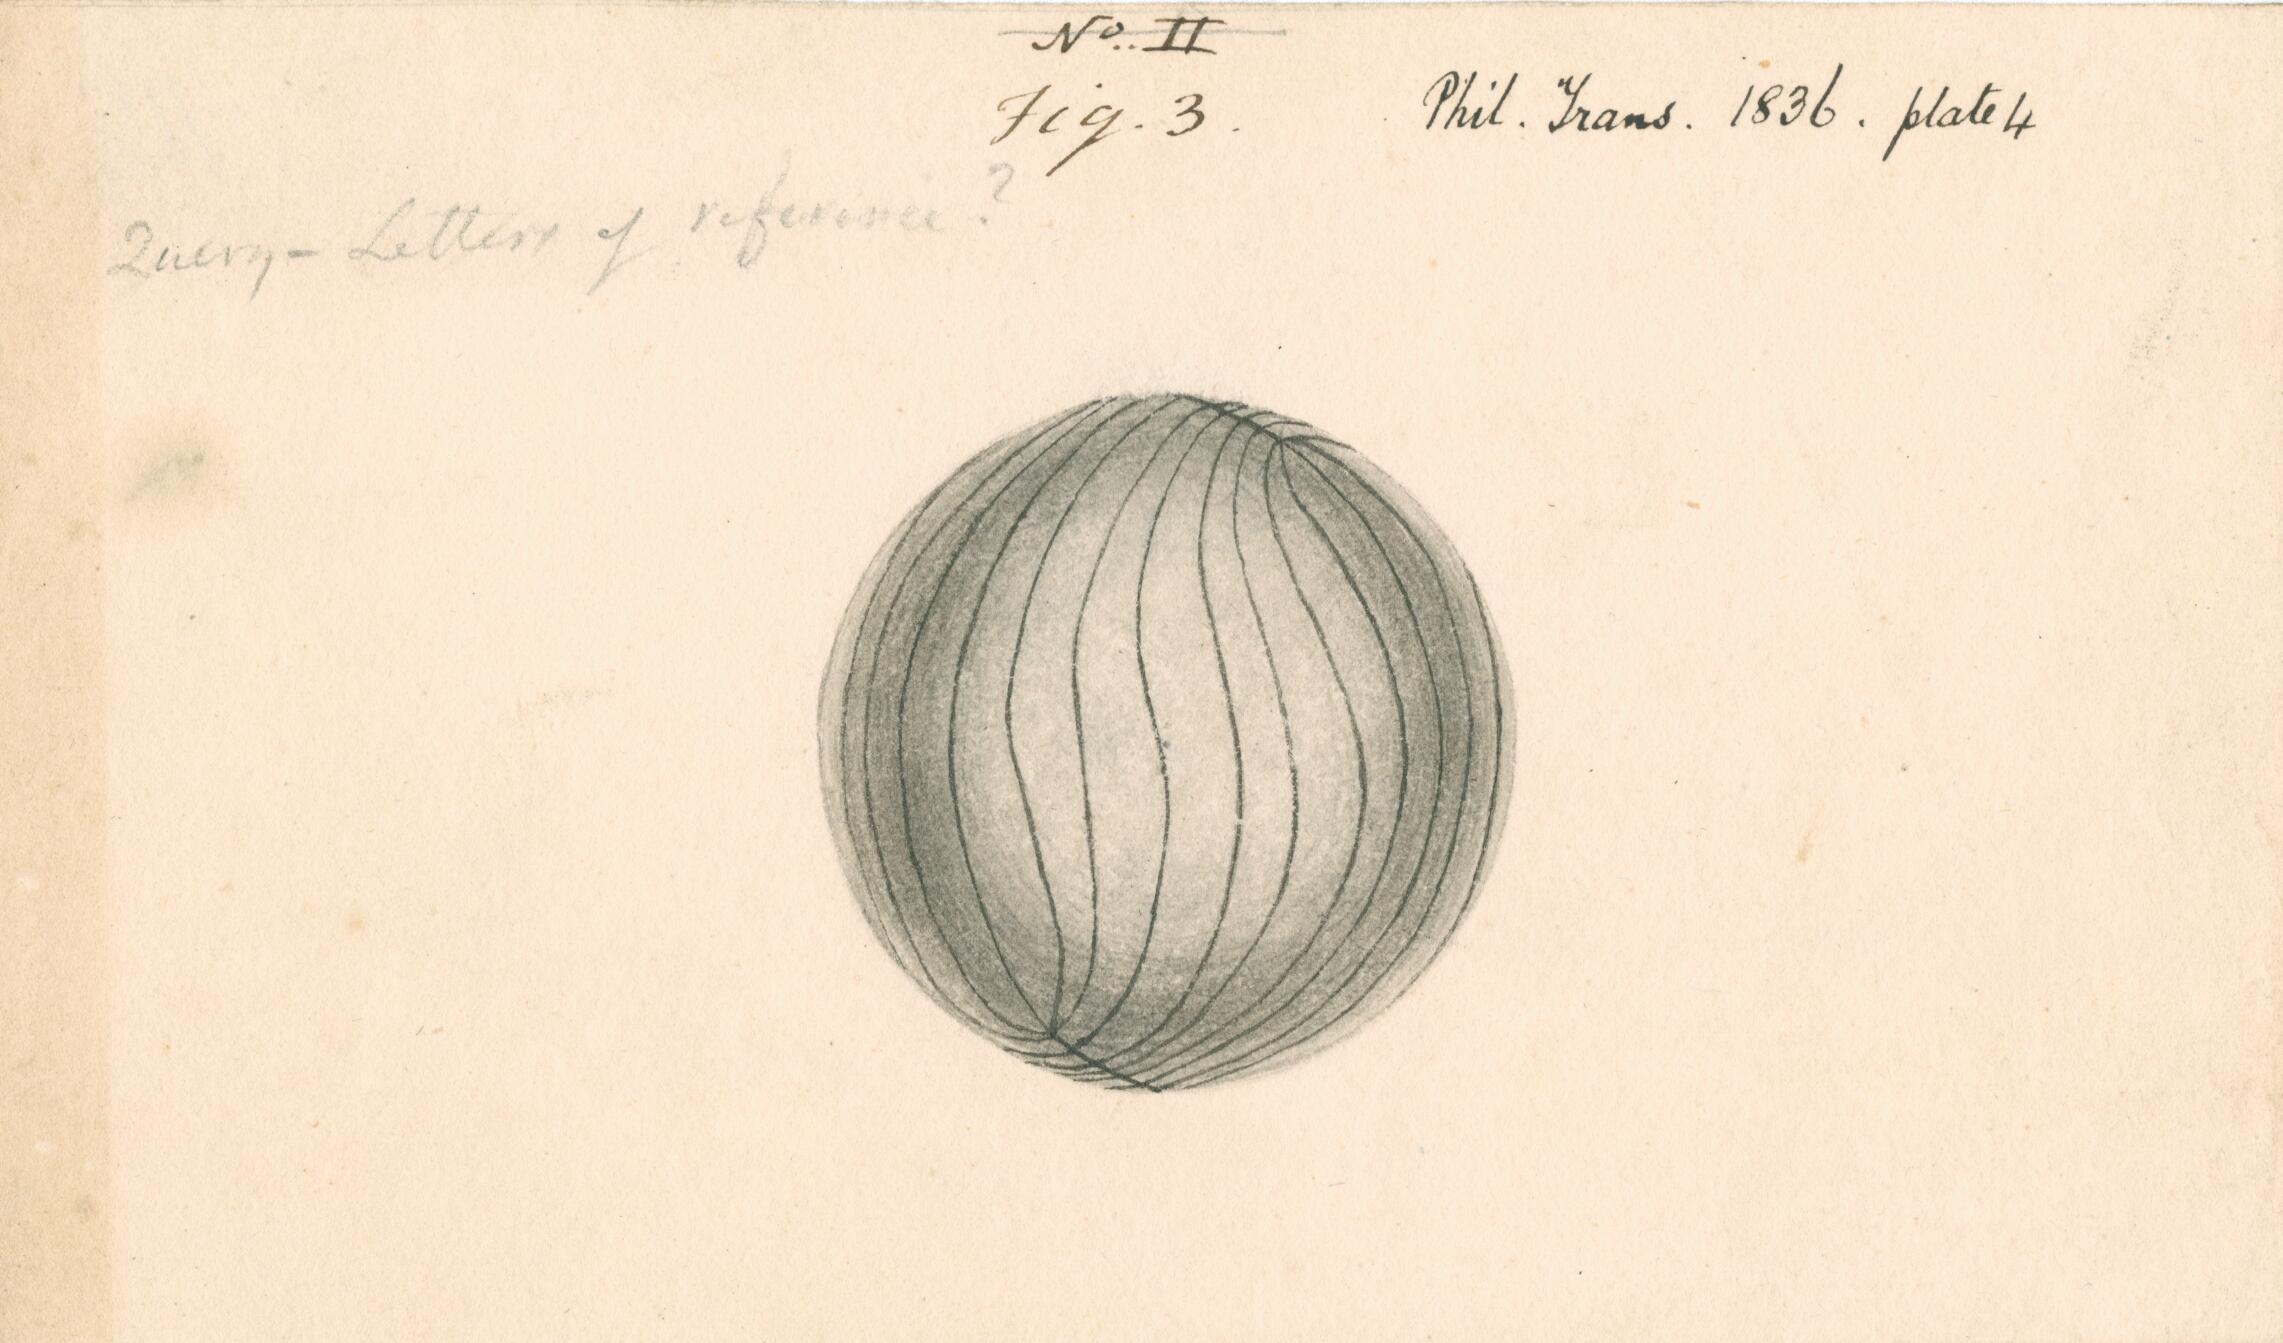 No. II
Fig. 3. Phil. Trans. 1836. plate 4
Query - Letters of reference?